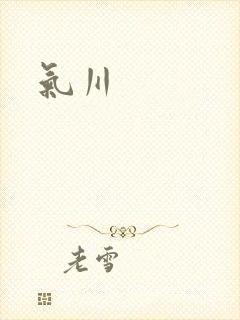 氣川
老雪